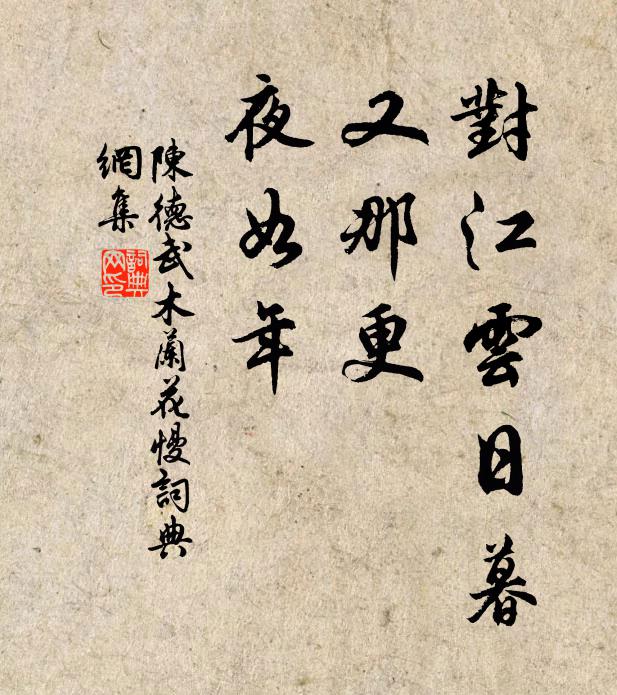 對江雲日暮
又那更
夜如年
陳德武木蘭花慢詞典
網集
詞典
网印